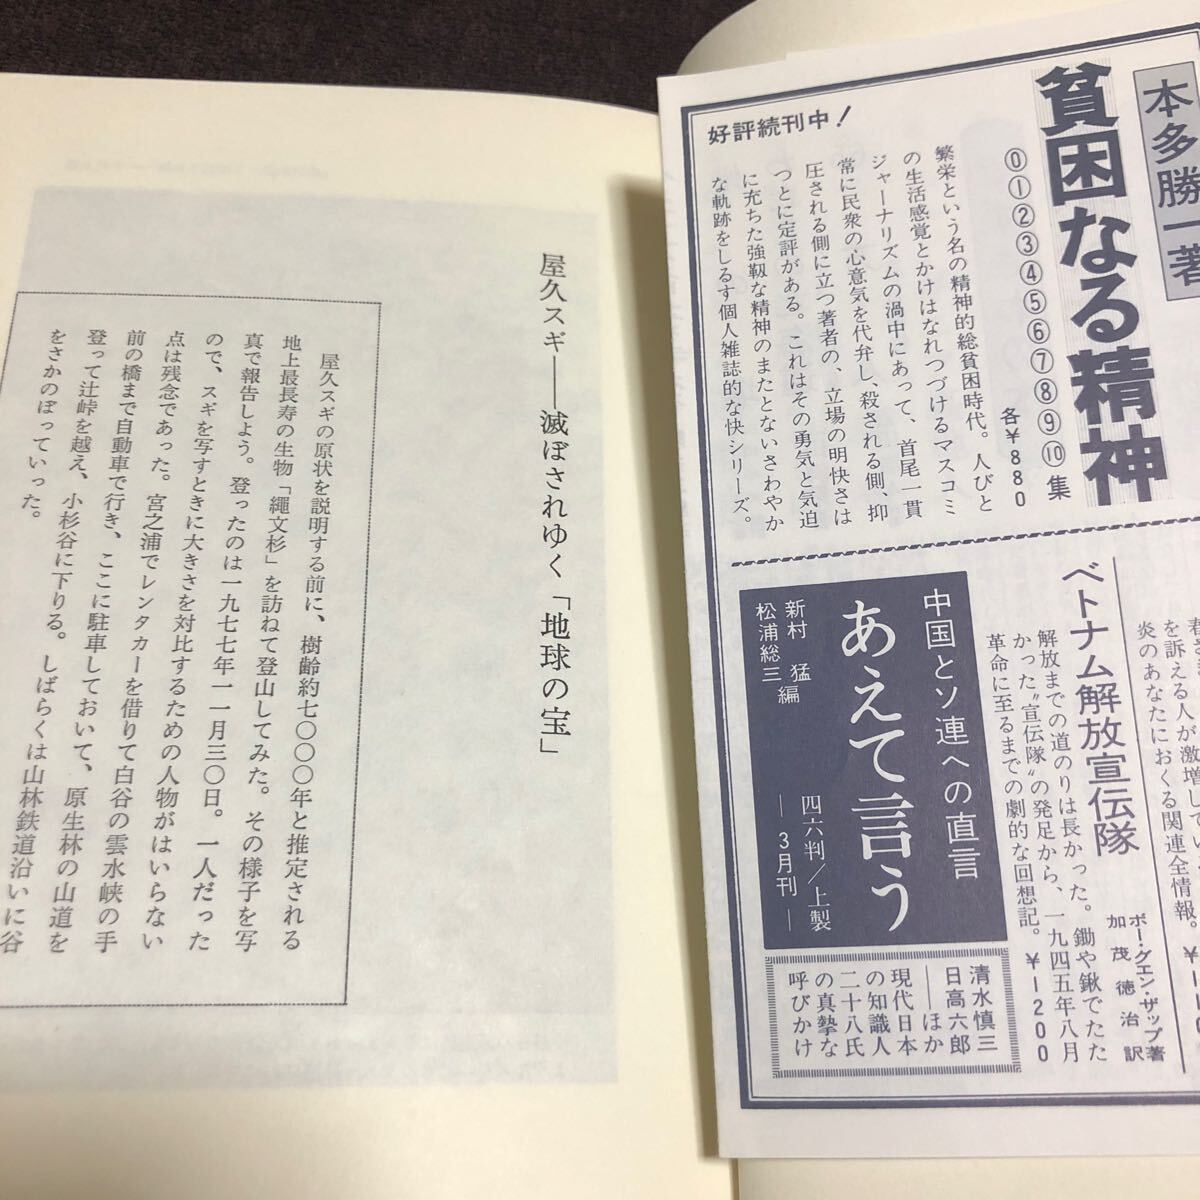 屋久スギ――滅ぼされゆく「地球の宝」
屋久スギの原状を説明する前に、樹齢約七〇〇〇年と推定される
地上最長寿の生物「縄文杉」を訪ねて登山してみた。その様子を写
真で報告しよう。登ったのは一九七七年一一月三〇日。一人だった
ので、スギを写すときに大きさを対比するための人物がはいらない
点は残念であった。宮之浦でレンタカーを借りて白谷の雲水峡の手
前の橋まで自動車で行き、ここに駐車しておいて、原生林の山道を
登って辻峠を越え、小杉谷に下りる。しばらくは山林鉄道沿いに谷
をさかのぼっていった。
本多勝一著
貧困なる精神
⓪①②③④⑤⑥⑦⑧⑨⑩集
各¥880
繁栄という名の精神的総貧困時代。人びと
の生活感覚とかけはなれつづけるマスコミ
ジャーナリズムの渦中にあって、首尾一貫
常に民衆の心意気を代弁し、殺される側、抑
圧される側に立つ著者の、立場の明快さは
つとに定評がある。これはその勇気と気迫
に充ちた強靱な精神のまたとないさわやか
な軌跡をしるす個人雑誌的な快シリーズ。
好評続刊中!
を訴える人が激増してい
炎のあなたにおくる関連全情報。
ベトナム解放宣伝隊
ボー・グエン・ザップ著
加茂徳治訳
解放までの道のりは長かった。鋤や鍬でたた
かった"宣伝隊"の発足から、一九四五年八月
革命に至るまでの劇的な回想記。¥1200
中国とソ連への直言
あえて言う
四六判/上製
―3月刊―
新村 猛編
松浦総三
清水慎三
日高六郎
――ほか
現代日本
の知識人
二十八氏
の真摯な
呼びかけ